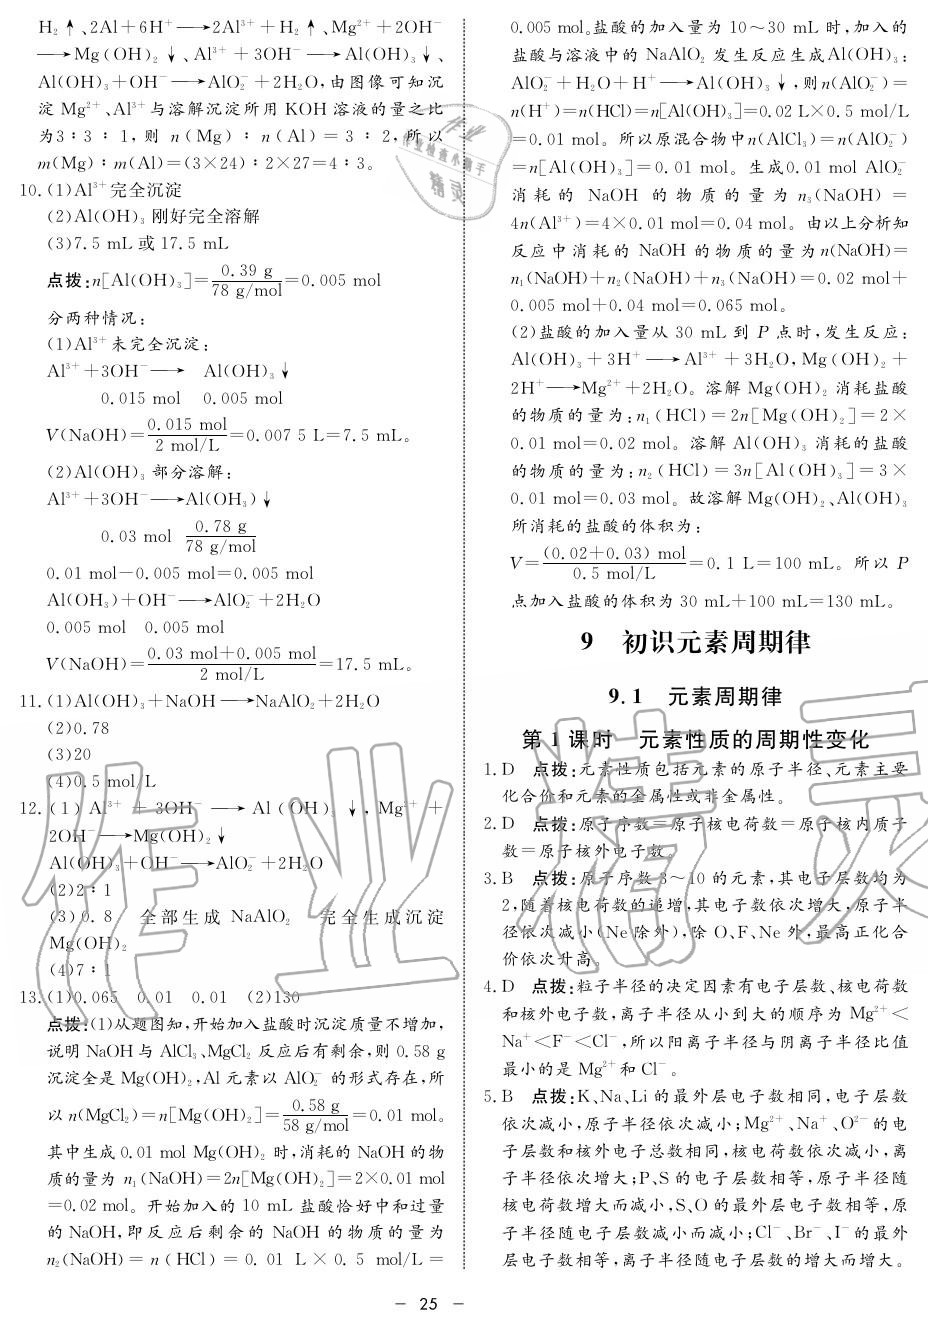 H₂↑、2Al+6H⁺⟶2Al³⁺+H₂↑、Mg²⁺+2OH⁻
⟶Mg(OH)₂↓、Al³⁺+3OH⁻⟶Al(OH)₃↓、
Al(OH)₃+OH⁻⟶AlO₂⁻+2H₂O,由图像可知沉
淀 Mg²⁺、Al³⁺与溶解沉淀所用 KOH 溶液的量之比
为3∶3∶1,则 n(Mg)∶n(Al)=3∶2,所以
m(Mg)∶m(Al)=(3×24)∶2×27=4∶3。
10.(1)Al³⁺完全沉淀
(2)Al(OH)₃ 刚好完全溶解
(3)7.5 mL 或 17.5 mL
点拨:n[Al(OH)₃]=0.39 g/78 g/mol=0.005 mol
分两种情况:
(1)Al³⁺未完全沉淀:
Al³⁺+3OH⁻⟶ Al(OH)₃↓
0.015 mol 0.005 mol
V(NaOH)=0.015 mol/2 mol/L=0.007 5 L=7.5 mL。
(2)Al(OH)₃ 部分溶解:
Al³⁺+3OH⁻⟶Al(OH₃)↓
0.03 mol 0.78 g/78 g/mol
0.01 mol-0.005 mol=0.005 mol
Al(OH₃)+OH⁻⟶AlO₂⁻+2H₂O
0.005 mol 0.005 mol
V(NaOH)=0.03 mol+0.005 mol/2 mol/L=17.5 mL。
11.(1)Al(OH)₃+NaOH⟶NaAlO₂+2H₂O
(2)0.78
(3)20
(4)0.5 mol/L
12.(1)Al³⁺+3OH⁻⟶Al(OH)₃↓,Mg²⁺+
2OH⁻⟶Mg(OH)₂↓
Al(OH)₃+OH⁻⟶AlO₂⁻+2H₂O
(2)2∶1
(3)0.8 全部生成 NaAlO₂ 完全生成沉淀
Mg(OH)₂
(4)7∶1
13.(1)0.065 0.01 0.01 (2)130
点拨:(1)从题图知,开始加入盐酸时沉淀质量不增加,
说明 NaOH 与 AlCl₃、MgCl₂ 反应后有剩余,则 0.58 g
沉淀全是 Mg(OH)₂,Al 元素以 AlO₂⁻ 的形式存在,所
以 n(MgCl₂)=n[Mg(OH)₂]=0.58 g/58 g/mol=0.01 mol。
其中生成 0.01 mol Mg(OH)₂ 时,消耗的 NaOH 的物
质的量为 n₁(NaOH)=2n[Mg(OH)₂]=2×0.01 mol
=0.02 mol。开始加入的 10 mL 盐酸恰好中和过量
的 NaOH,即反应后剩余的 NaOH 的物质的量为
n₂(NaOH)=n(HCl)=0.01 L×0.5 mol/L=
0.005 mol。盐酸的加入量为 10～30 mL 时,加入的
盐酸与溶液中的 NaAlO₂ 发生反应生成Al(OH)₃:
AlO₂⁻+H₂O+H⁺⟶Al(OH)₃↓,则n(AlO₂⁻)=
n(H⁺)=n(HCl)=n[Al(OH)₃]=0.02 L×0.5 mol/L
=0.01 mol。所以原混合物中n(AlCl₃)=n(AlO₂⁻)
=n[Al(OH)₃]=0.01 mol。生成0.01 mol AlO₂⁻
消耗的 NaOH 的物质的量为 n₃(NaOH)=
4n(Al³⁺)=4×0.01 mol=0.04 mol。由以上分析知
反应中消耗的 NaOH 的物质的量为n(NaOH)=
n₁(NaOH)+n₂(NaOH)+n₃(NaOH)=0.02 mol+
0.005 mol+0.04 mol=0.065 mol。
(2)盐酸的加入量从 30 mL 到 P 点时,发生反应:
Al(OH)₃+3H⁺⟶Al³⁺+3H₂O,Mg(OH)₂+
2H⁺⟶Mg²⁺+2H₂O。溶解 Mg(OH)₂ 消耗盐酸
的物质的量为:n₁(HCl)=2n[Mg(OH)₂]=2×
0.01 mol=0.02 mol。溶解 Al(OH)₃ 消耗的盐酸
的物质的量为:n₂(HCl)=3n[Al(OH)₃]=3×
0.01 mol=0.03 mol。故溶解 Mg(OH)₂、Al(OH)₃
所消耗的盐酸的体积为:
V=(0.02+0.03) mol/0.5 mol/L=0.1 L=100 mL。所以 P
点加入盐酸的体积为 30 mL+100 mL=130 mL。
9 初识元素周期律
9.1 元素周期律
第 1 课时 元素性质的周期性变化
1.D 点拨:元素性质包括元素的原子半径、元素主要
化合价和元素的金属性或非金属性。
2.D 点拨:原子序数=原子核电荷数=原子核内质子
数=原子核外电子数。
3.B 点拨:原子序数 3～10 的元素,其电子层数均为
2,随着核电荷数的递增,其电子数依次增大,原子半
径依次减小(Ne 除外),除 O、F、Ne 外,最高正化合
价依次升高。
4.D 点拨:粒子半径的决定因素有电子层数、核电荷数
和核外电子数,离子半径从小到大的顺序为 Mg²⁺<
Na⁺<F⁻<Cl⁻,所以阳离子半径与阴离子半径比值
最小的是 Mg²⁺和 Cl⁻。
5.B 点拨:K、Na、Li 的最外层电子数相同,电子层数
依次减小,原子半径依次减小;Mg²⁺、Na⁺、O²⁻的电
子层数和核外电子总数相同,核电荷数依次减小,离
子半径依次增大;P、S 的电子层数相等,原子半径随
核电荷数增大而减小,S、O 的最外层电子数相等,原
子半径随电子层数减小而减小;Cl⁻、Br⁻、I⁻的最外
层电子数相等,离子半径随电子层数的增大而增大。
- 25 -
作业精灵
作业
作业检查小助手
精灵